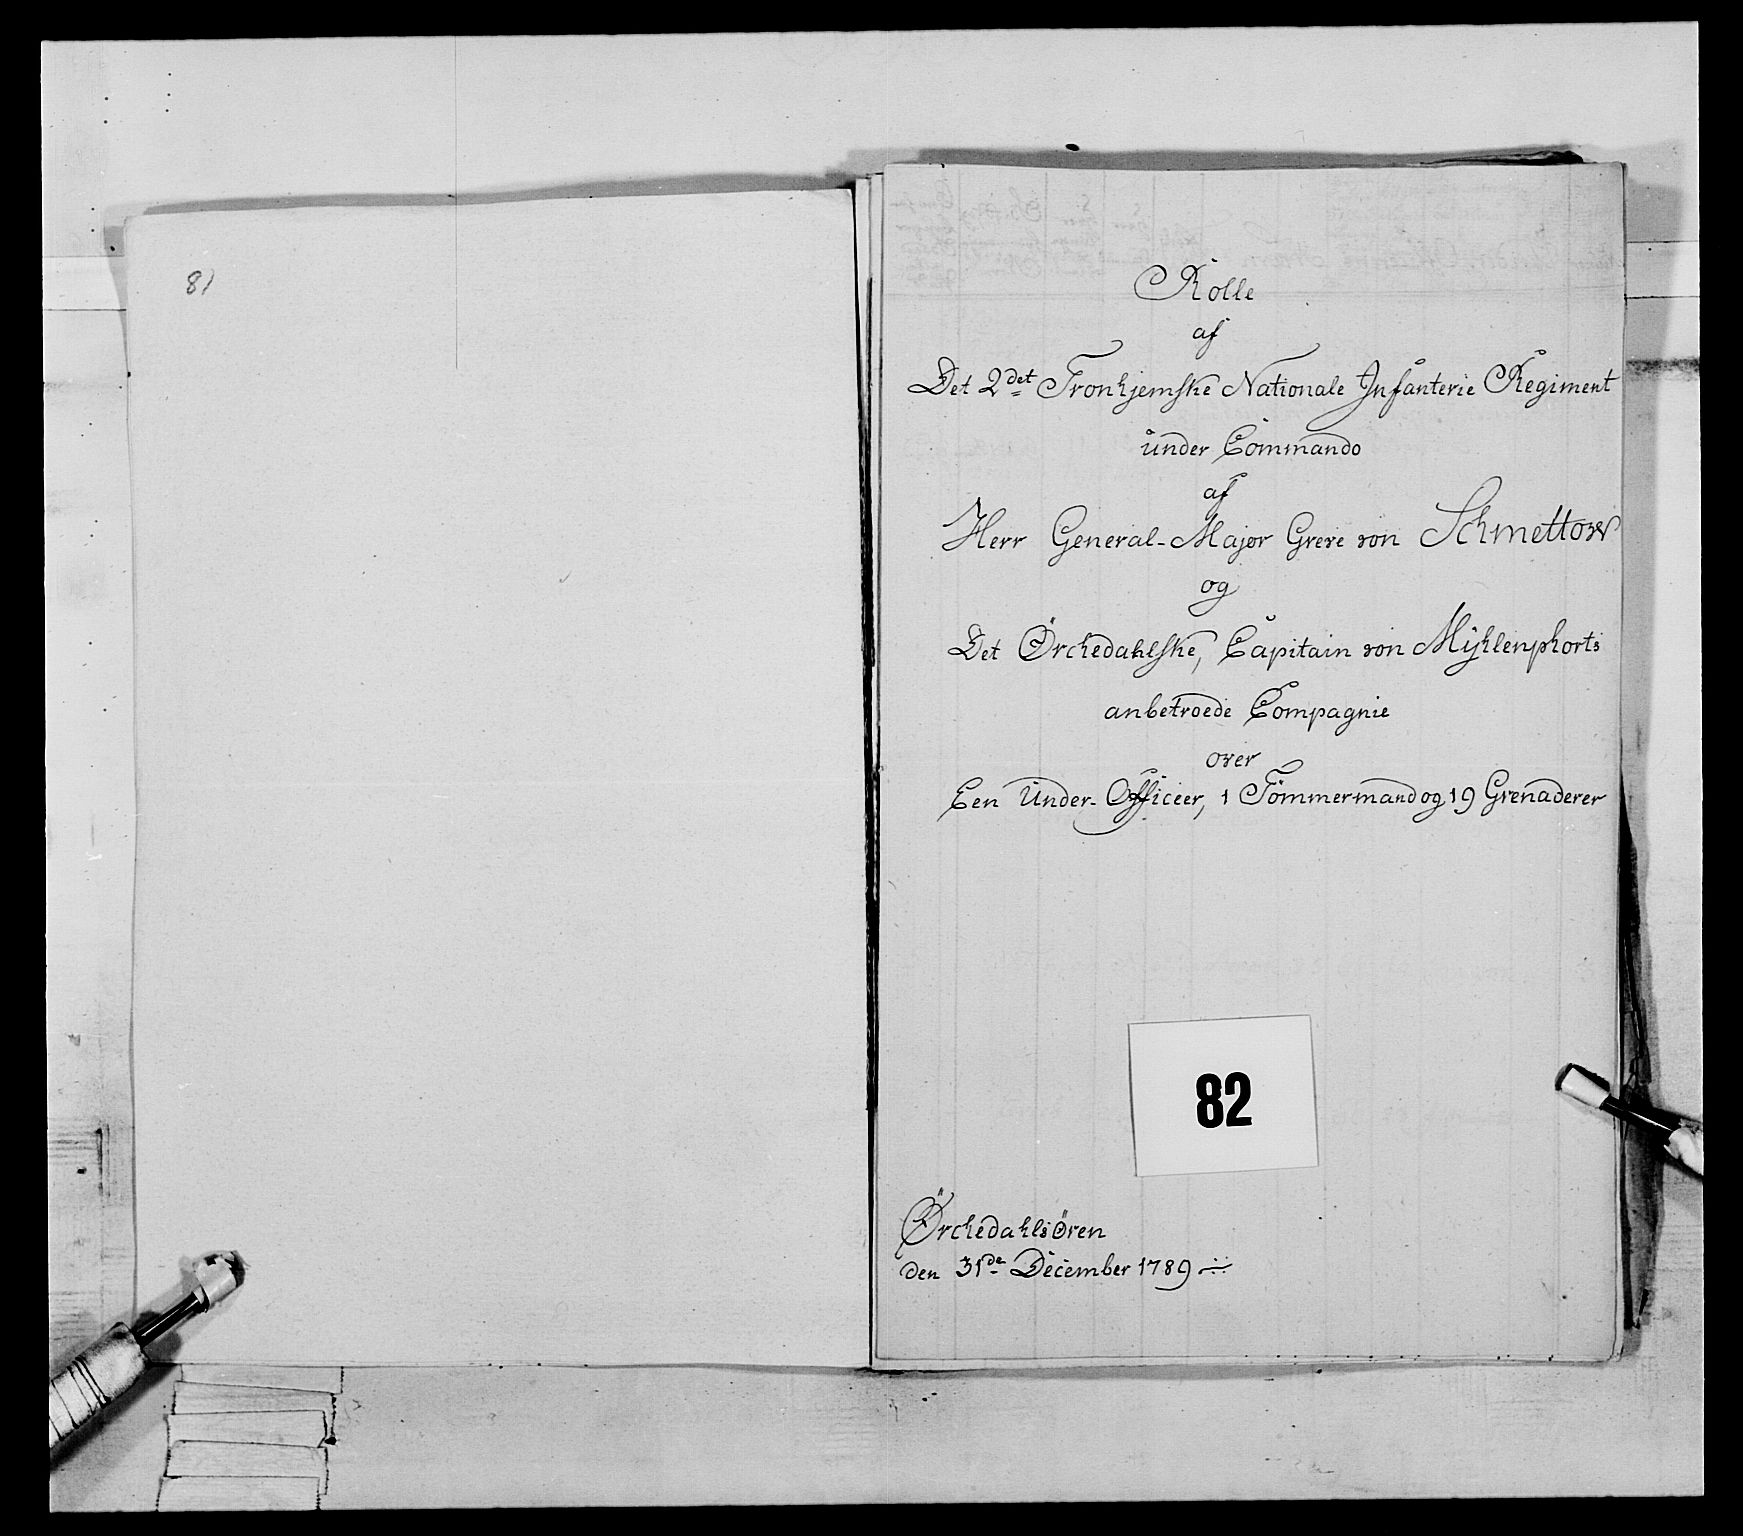 81
Rolle
af
Det 2det Tronhjemske Nationale Infanterie Regiment
under Commando
af
Herr General-Major Greve von Schmettow
og
Det Örchedahlske, Capitain von Mÿhlenphorts
anbetroede Compagnie
over
Een Under-Officeer, 1 Tömmermand og 19 Grenaderer
82
Örchedahlsören
den 31de December 1789